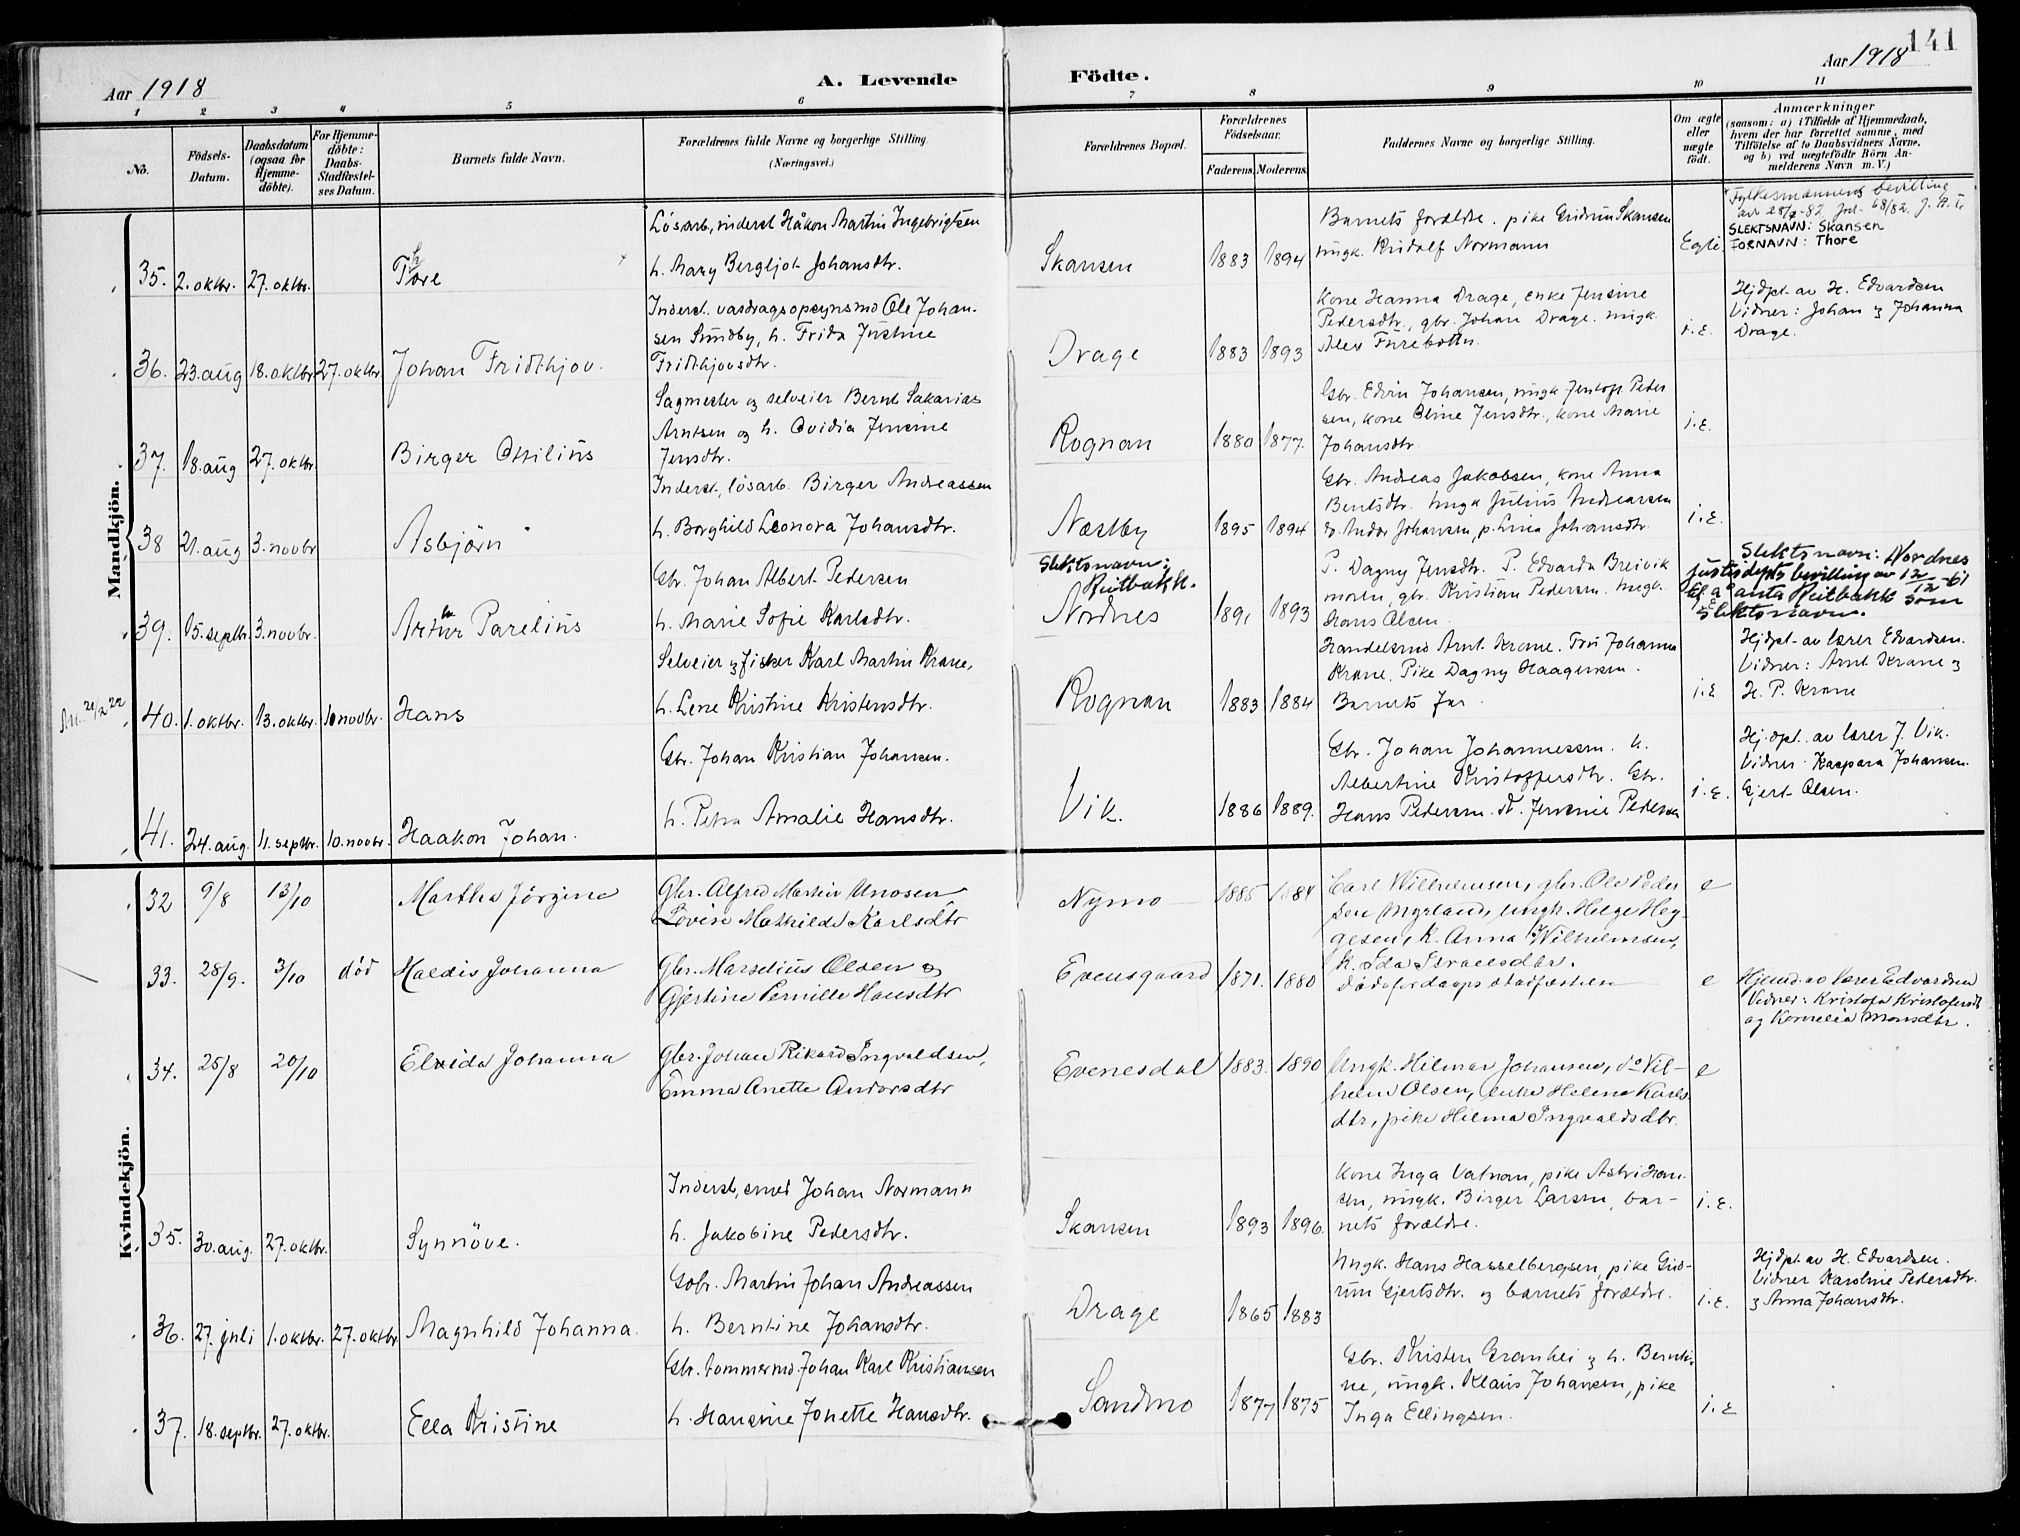 141
Aar 1918
A. Levende Födte.
Aar 1918
1 2 3 4 5 6 7 8 9 10 11
No.
Födsels-Datum.
Daabsdatum (ogsaa for Hjemmedöbte).
For Hjemmedöbte: Daabs-Stadfæstelses Datum.
Barnets fulde Navn.
Forældrenes fulde Navne og borgerlige Stilling. (Næringsvei.)
Forældrenes Bopæl.
Forældrenes Födselsaar.
Faderens. Moderens.
Faddernes Navne og borgerlige Stilling.
Om ægte eller uægte födt.
Anmærkninger
(saasom: a) i Tilfælde af Hjemmedaab,
hvem der har forrettet samme, med
Tilföielse af to Daabsvidners Navne,
og b) ved uægtefödte Börn Anmelderens Navn m. V.)
Mandkjön.
35. 2. oktbr. 27. oktbr. Thore
Løsarb, inderst Håkon Martin Ingebrigtsen
h. Mary Bergljot Johansdtr.
Skansen 1883 1894
Barnets forældre. pike Gudrun Skansen
ungk. Rudolf Normann
Egte
Fylkesmannens bevilling
av 28/2-82 Jnr. 68/82.
SLEKTSNAVN: Skansen
FORNAVN: Thore
36. 23. aug 18. oktbr 27. oktbr. Johan Fridthjov.
Inderst. vasdragsopsynsmd Ole Johan-
sen Sundby, h. Frida Justine
Fridthjovsdtr.
Drage 1883 1893
Kone Hanna Drage, enke Jensine
Pedersdtr., gbr. Johan Drage. ungk.
Alex Furebotn.
i. E.
Hjdpt. av H. Edvardsen
Vidner: Johan og Johanna
Drage.
37. 18. aug 27. oktbr. Birger Otilius
Sagmester og selveier Bernt Sakarias
Arntsen og h. Ovidia Jensine
Jensdtr.
Rognan 1880 1877.
Gbr. Edvin Johansen, ungk Jentoft Peder
sen, kone Eline Jensdtr., kone Marie
Johansdtr.
i. E.
38 21. aug 3. novbr Asbjörn
Inderst, løsarb. Birger Andreassen
h. Borghild Leonora Johansdtr.
Næstby 1895 1894
Gbr. Andreas Jakobsen, kone Anna
Berntsdtr. Ungk Julius Andreassen
o. Andor Johansen, p. Lina Johansdtr.
i. E.
39. 15. septbr. 3. novbr. Arthur Parelius
Gbr. Johan Albert Pedersen
h. Marie Sofie Karlsdtr.
Slektsnavn:
Reitbakk.
Nordnes 1891 1893
P. Dagny Jensdtr. P. Edvarda Breivik
moen, gbr. Kristian Pedersen. Ungk.
Hans Olsen.
Slektsnavn: Nordnes
Justisdpts bevilling av 12/12-61
til å anta Reitbakk som
slektsnavn.
40. 1. oktbr. 13. oktbr. 10 novbr. Hans
Selveier og fisker Karl Martin Krane,
h. Lene Kristine Kristensdtr.
Rognan 1883 1884
Handelsmd Arnt Krane. Fru Johanna
Krane. Pike Dagny Haagensen.
Barnets far.
i. E
Hjdpt. av lærer Edvardsen.
Vidner: Arnt Krane og
H. P. Krane
41. 24. aug. 11. septbr. 10. novbr. Haakon Johan.
Gbr. Johan Kristian Johansen.
h. Petra Amalie Hansdtr.
Vik. 1886 1889.
Gbr. Johan Johannessen. h.
Albertine Kristoffersdtr. Gbr.
Hans Pedersen. Jensine Pedersen
i. E.
Hj. dpt. av lærer J. Vik.
Vidner Kaspara Johansen.
Gjert Olsen.
Kvindekjön.
32 9/8 13/10 Martha Jörgine
Gbr. Alfred Martin Unosen
Lovise Mathilde Karlsdtr
Nymo 1885 1884
Carl Wilhelmsen, gbr. Ole Peder
sen Myrland, ungk. Helge Heg-
gesen, k. Anna Wilhelmsen,
k. Ida Israelsdtr.
e
33. 28/9. 3/10 död Haldis Johanna
Gbr. Marselius Olsen og
Gjertine Pernille Hansdtr
Evensgaard 1871. 1880
Död för daapsstadfæstelse
e
Hjemd. av lærer Edvardsen
Vidner: Kristofa Kristofersdtr
og Kornelia Monsdtr.
34. 25/8 20/10 Elvida Johanna
Gbr. Johan Rikard Ingvaldsen,
Emma Anette Andorsdtr
Evenesdal 1883. 1890
Ungk. Hilmar Johansen, do Vil-
helm Olsen, enke Helena Karls
dtr, pike Hilma Ingvaldsdtr.
e
35. 30. aug. 27. oktbr. Synnöve.
Inderst, smed Johan Normann
h. Jakobine Pedersdtr.
Skansen 1893 1896.
Kone Inga Vatnan, pike Astri Han-
sen, ungk. Birger Larsen, bar-
nets forældre.
i. E.
36. 27. juli 1. oktbr. 27. oktbr Magnhild Johanna.
Gbr. Martin Johan Andreassen
h. Berntine Johansdtr.
Drage 1865 1883
Ungk. Hans Hasselbergsen, pike Gud-
run Gjertsdtr. og barnets forældre.
i. E.
Hjdpt av H. Edvardsen.
Vidner Karoline Pedersdtr.
og Anna Johansdtr.
37. 18. septbr. 27. oktbr. Ella Kristine
Gbr. tømmermd Johan Karl Kristiansen
h. Hansine Jonette Hansdtr.
Sandmo 1877 1875
Gbr. Kristen Granhei og h. Bernti-
ne, ungk. Klaus Johansen, pike
Inga Ellingsen.
i. E